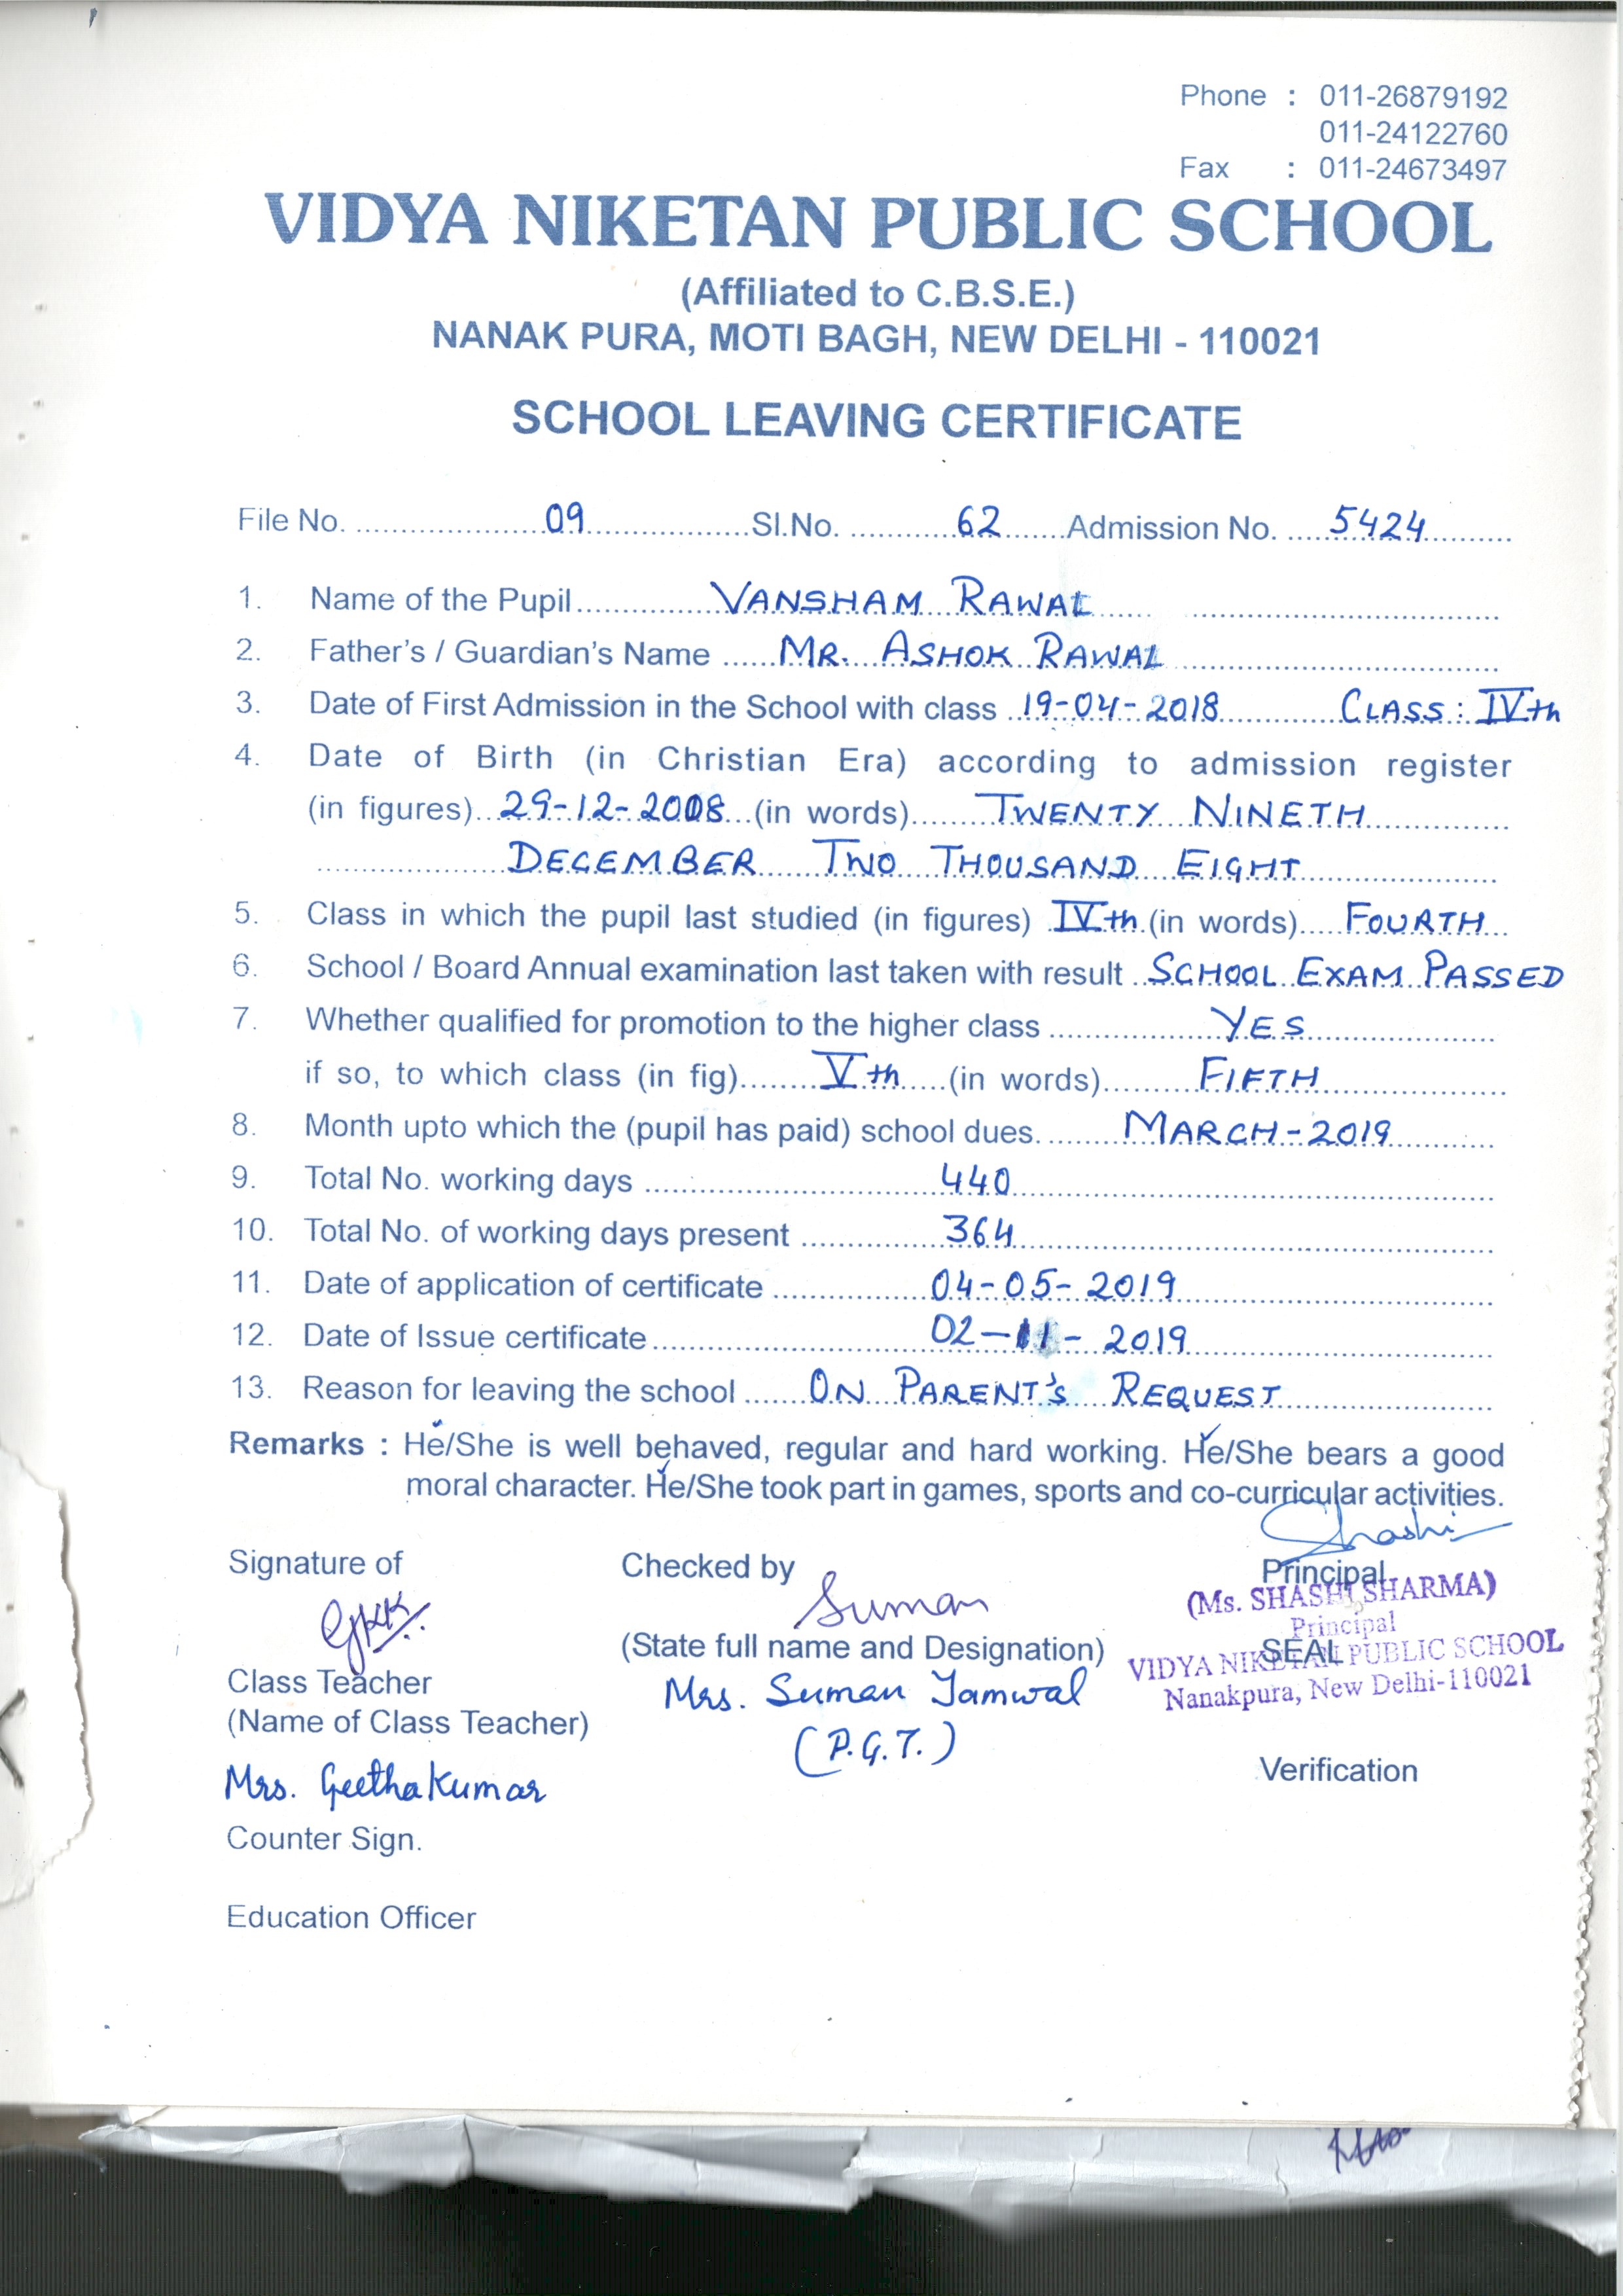 Phone : 011-26879192
011-24122760
Fax : 011-24673497
VIDYA NIKETAN PUBLIC SCHOOL
(Affiliated to C.B.S.E.)
NANAK PURA, MOTI BAGH, NEW DELHI - 110021
SCHOOL LEAVING CERTIFICATE
File No. 09 Sl.No. 62 Admission No. 5424
1. Name of the Pupil VANSHAM RAWAL
2. Father's / Guardian's Name MR. ASHOK RAWAL
3. Date of First Admission in the School with class 19-04-2018 CLASS: IVth
4. Date of Birth (in Christian Era) according to admission register
(in figures) 29-12-2008 (in words) TWENTY NINETH
DECEMBER TWO THOUSAND EIGHT
5. Class in which the pupil last studied (in figures) IVth (in words) FOURTH
6. School / Board Annual examination last taken with result SCHOOL EXAM PASSED
7. Whether qualified for promotion to the higher class YES
if so, to which class (in fig) Vth (in words) FIFTH
8. Month upto which the (pupil has paid) school dues. MARCH-2019
9. Total No. working days 440
10. Total No. of working days present 364
11. Date of application of certificate 04-05-2019
12. Date of Issue certificate 02-11-2019
13. Reason for leaving the school ON PARENT'S REQUEST
Remarks : He/She is well behaved, regular and hard working. He/She bears a good
moral character. He/She took part in games, sports and co-curricular activities.
Shashi
Signature of Checked by Principal
GKK Suman (Ms. SHASHI SHARMA)
Principal
(State full name and Designation) SEAL
VIDYA NIKETAN PUBLIC SCHOOL
Nanakpura, New Delhi-110021
Class Teacher Mrs. Suman Jamwal
(Name of Class Teacher) (P.G.T.)
Verification
Mrs. Geetha Kumar
Counter Sign.
Education Officer